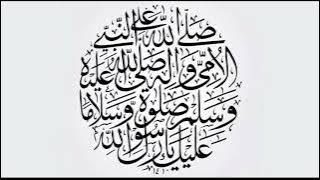 صَلَّى اللّٰهُ عَلَى النَّبِيِّ
الْأُمِّيِّ وَآلِهٖ صَلَّى اللّٰهُ عَلَيْهِ
وَسَلَّمَ صَلٰوةً وَّسَلَامًا
عَلَيْكَ يَا رَسُولَ اللّٰهِ
١٤١٠